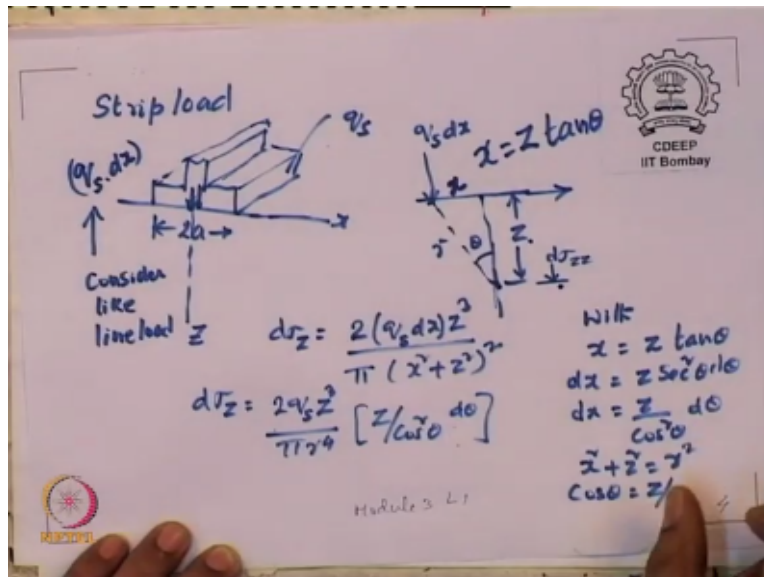 Strip load
q_s
(q_s.dx)
x
2a
Consider
like
line load
Z
q_s dx
x = Z tanθ
x
r
θ
Z
dσ_zz
dσ_z = 2(q_s dx)z³ / π(x²+z²)²
dσ_z = 2q_s z³ / πr⁴ [z/cos²θ dθ]
With
x = z tanθ
dx = z sec²θ dθ
dx = z / cos²θ dθ
x² + z² = r²
cosθ = z/
Module 3 L1
CDEEP
IIT Bombay
NPTEL